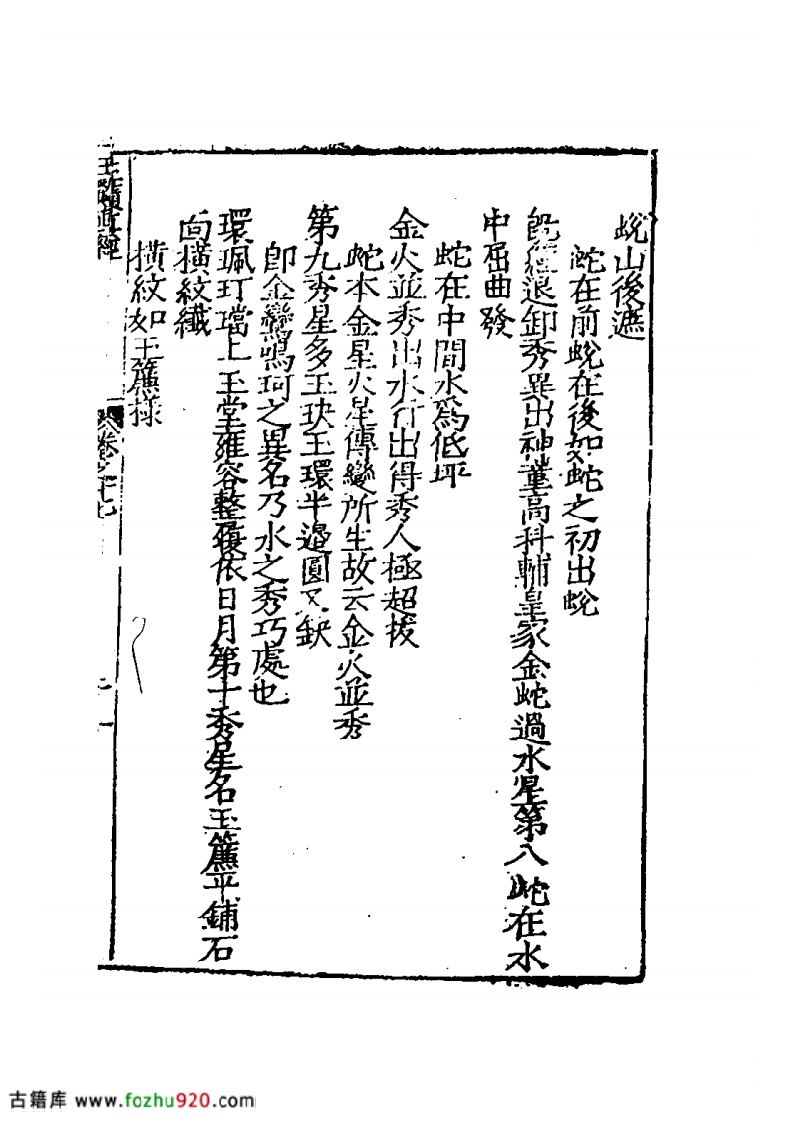 蛻山後遮
蛇在前蛻在後如蛇之初出蛻
既經退卸秀異出神童高科輔皇家金蛇過水星第八蛇在水
中屈曲發
蛇在中間水爲低坪
金火並秀出水行出得秀人極超拔
蛇本金星火星傳變所生故云金火並秀
第九秀星多玉玦玉環半邉圓又缺
卽金鸞鳴珂之異名乃水之秀巧處也
環珮玎璫上玉堂雍容整履依日月第十秀星名玉簾平鋪石
面橫紋纎
橫紋如玉簾樣
玉髓眞經
卷之十七
古籍库 www.fozhu920.com